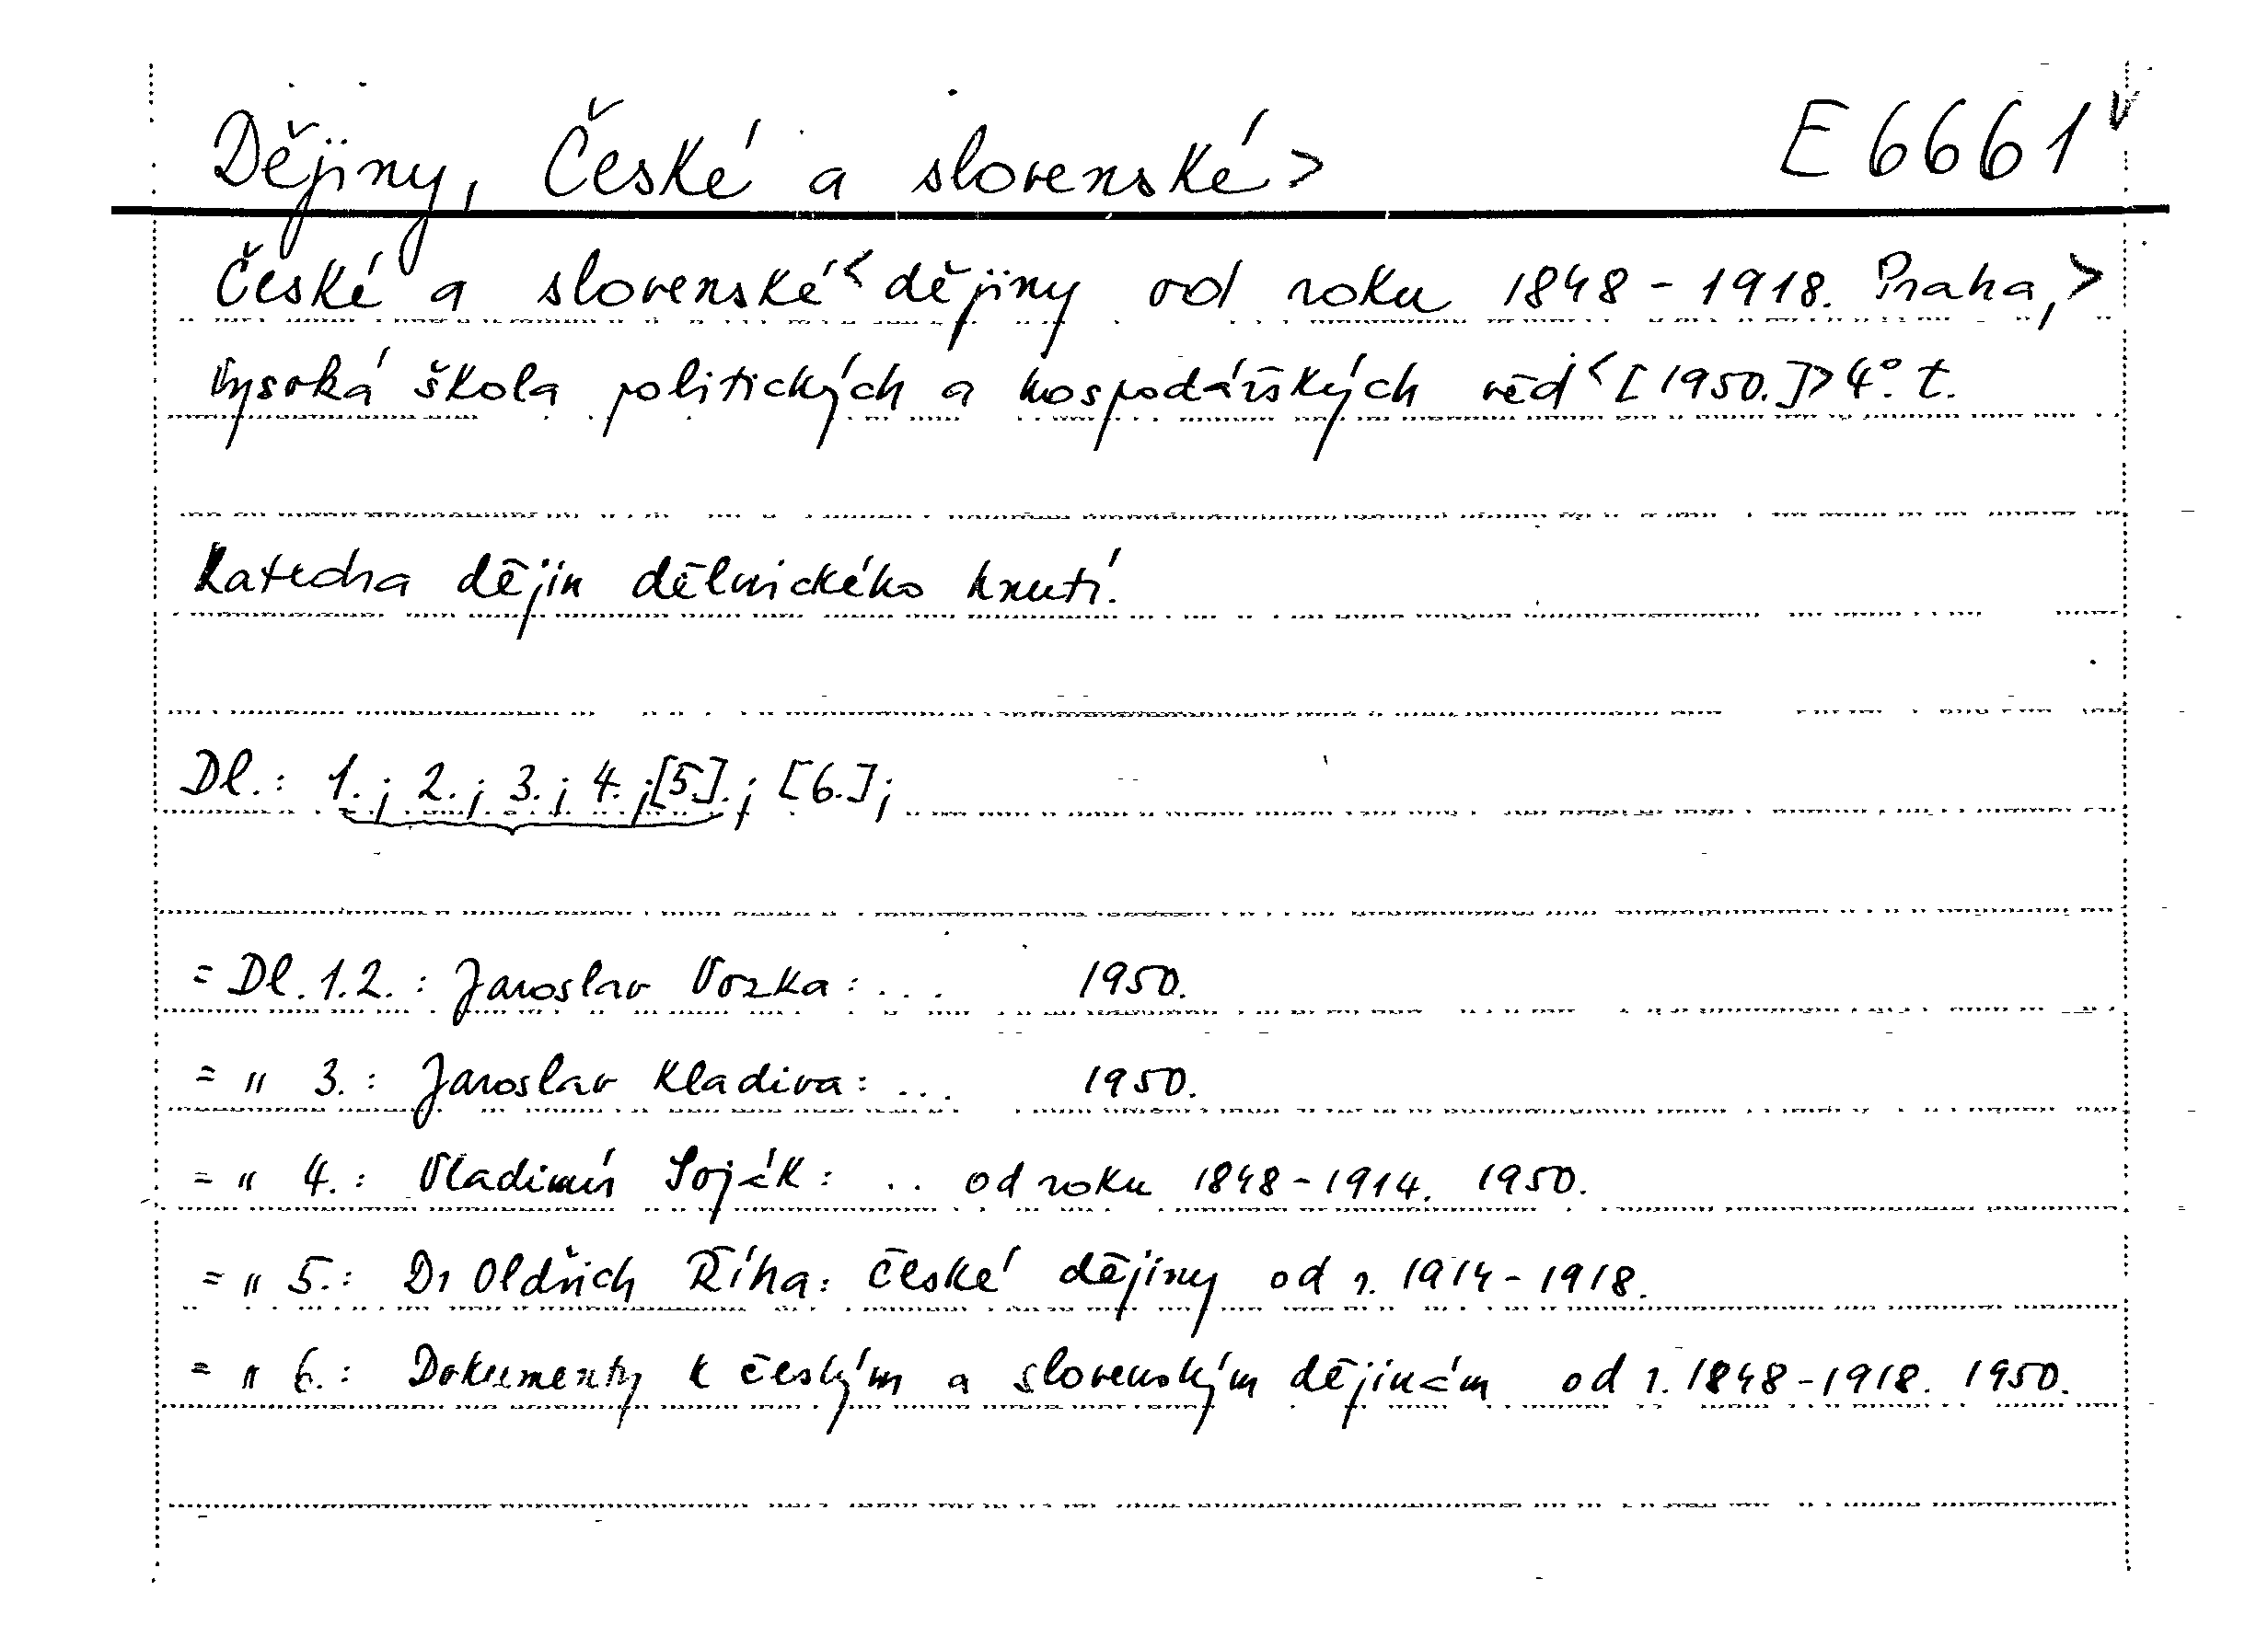 Dějiny, České a slovenské> E 6661
České a slovenské< dějiny od roku 1848-1918. Praha,>
Vysoká škola politických a hospodářských věd< [1950.]> 4°. t.
Katedra dějin dělnického hnutí.
Dl.: 1.; 2.; 3.; 4.; [5].; [6.];
= Dl. 1.2.: Jaroslav Vozka: ... 1950.
= " 3.: Jaroslav Kladiva: ... 1950.
= " 4.: Vladimír Soják: .. od roku 1848-1914. 1950.
= " 5.: Dr Oldřich Říha: České dějiny od r. 1914-1918.
= " 6.: Dokumenty k českým a slovenským dějinám od r. 1848-1918. 1950.